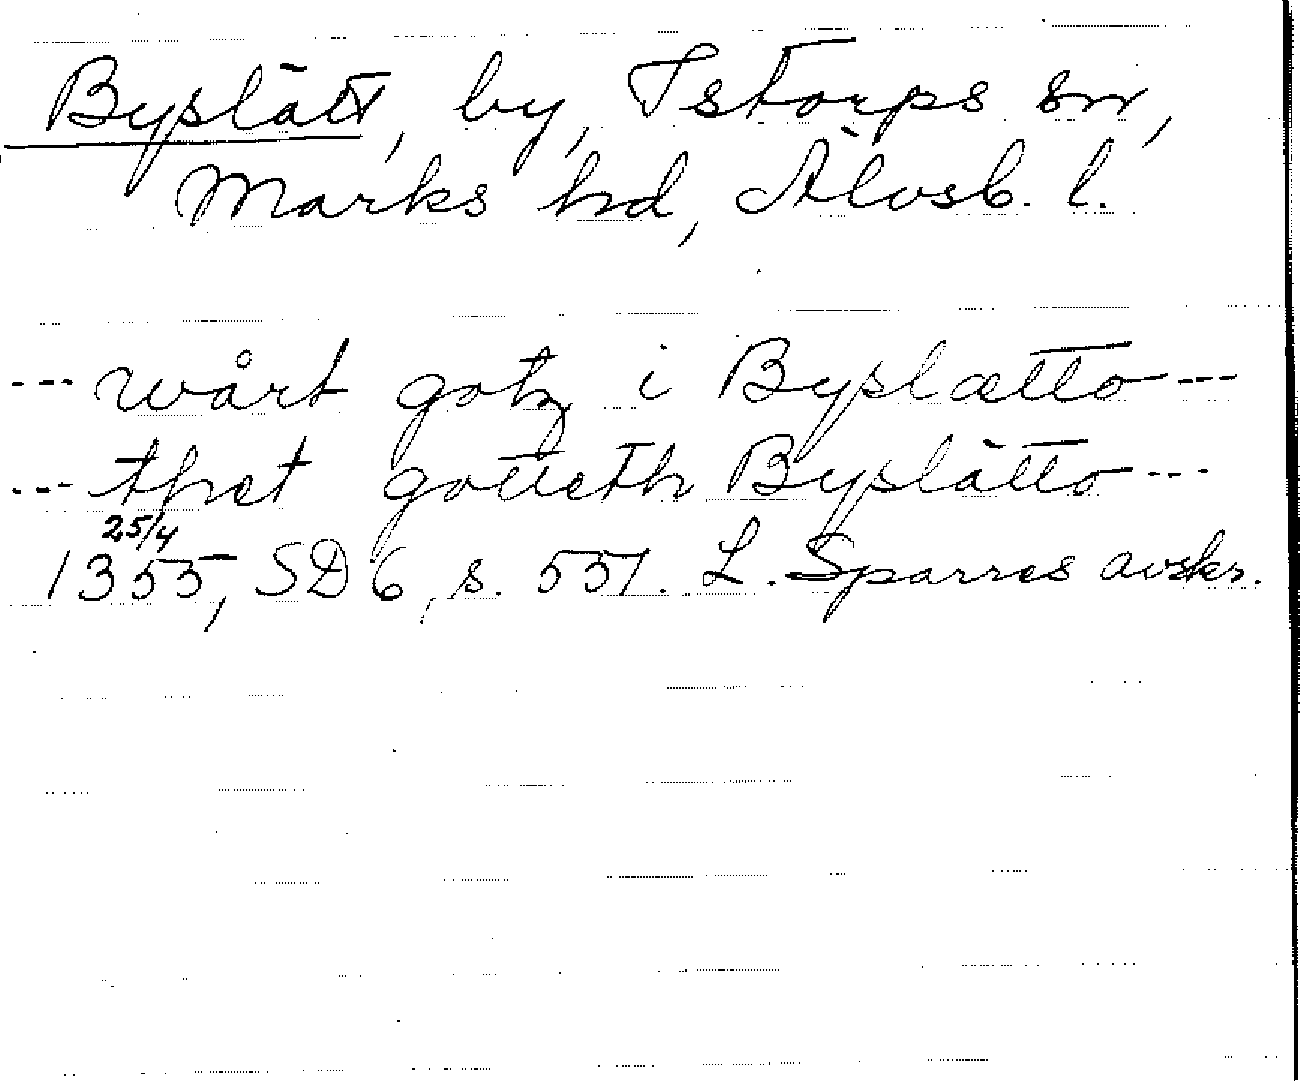 Byslätt, by, Istorps sn,
Marks hd, Älvsb. l.
--- wårt gotz i Byslætto ---
--- thet gotteth Byslätto ---
25/4
1355, SD 6, s. 551. L. Sparres avskr.